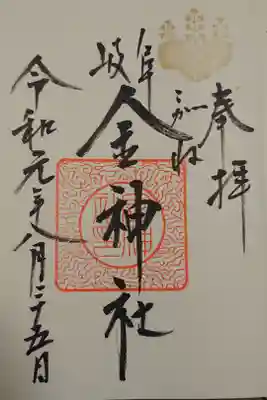 奉拝
岐阜
こがね
金神社
令和元年八月二十五日